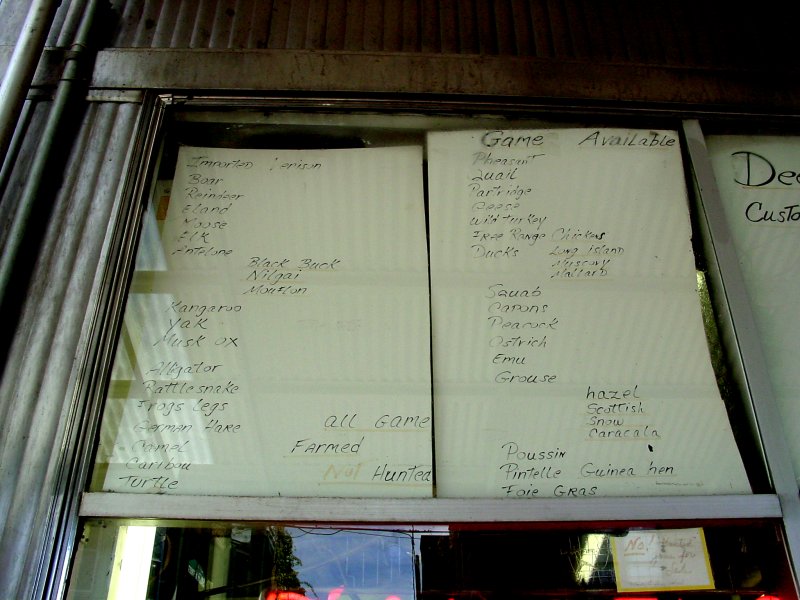 Imported Venison
Boar
Reindeer
Eland
Moose
Elk
Antelope
Black Buck
Nilgai
Mouflon
Kangaroo
Yak
Musk ox
Alligator
Rattlesnake
Frogs Legs
German Hare
Camel
Caribou
Turtle
all Game
Farmed
Not Hunted
Game Available
Pheasant
Quail
Partridge
Geese
Wild turkey
Free Range Chickens
Ducks Long Island
Muscovy
Mallard
Squab
Capons
Peacock
Ostrich
Emu
Grouse
hazel
Scottish
Snow
Caracala
Poussin
Pintelle Guinea hen
Foie Gras
Dee
Custo
No!
for